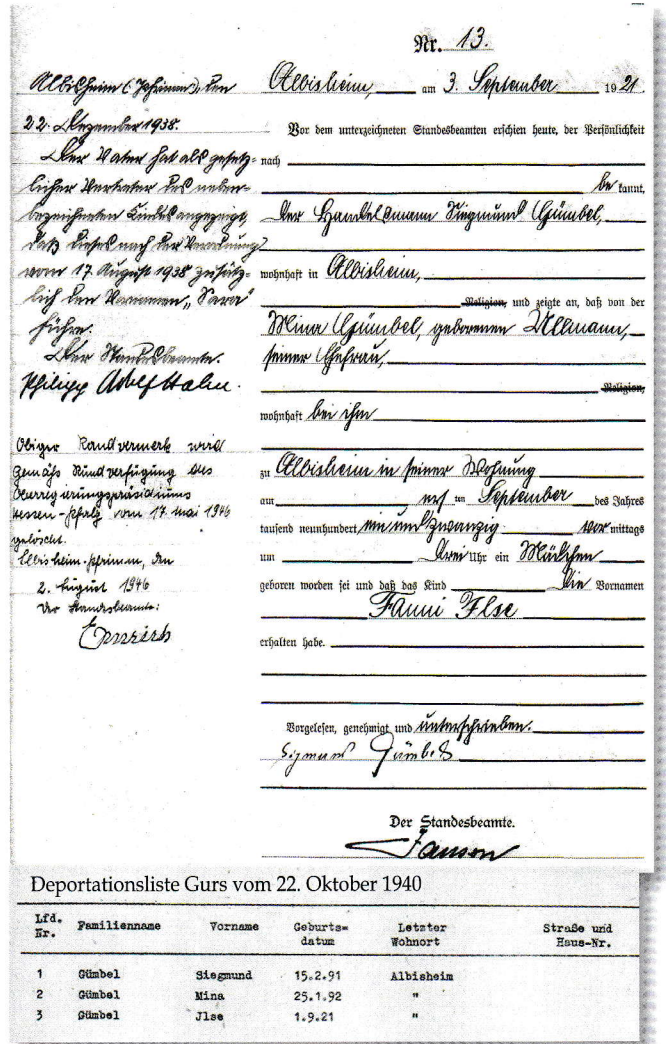 Nr. 13.
Albisheim, am 3. September 1921
Vor dem unterzeichneten Standesbeamten erschien heute, der Persönlichkeit
nach
be kannt,
der Handelsmann Siegmund Gümbel,
wohnhaft in Albisheim,
Religion, und zeigte an, daß von der
Mina Gümbel, geborenen Ullmann,
seiner Ehefrau,
Religion,
wohnhaft bei ihm
zu Albisheim in seiner Wohnung
am ersten September des Jahres
tausend neunhundert ein und zwanzig vor mittags
um drei Uhr ein Mädchen
geboren worden sei und daß das Kind die Vornamen
Fanni Ilse
erhalten habe.
Vorgelesen, genehmigt und unterschrieben.
Sigmund Gümbel
Der Standesbeamte.
Janson
Albisheim (Pfrimm), den
22. Dezember 1938.
Der Vater hat als gesetz-
licher Vertreter des neben-
bezeichneten Kindes angezeigt,
daß dieses nach der Verordnung
vom 17. August 1938 zusätz-
lich den Vornamen „Sara"
führe.
Der Standesbeamte.
Philipp Adolf Hahn.
Obiger Randvermerk wird
gemäß Rundverfügung des
Oberregierungspräsidiums
Hessen-Pfalz vom 17. Mai 1946
gelöscht.
Albisheim-Pfrimm, den
2. August 1946
Der Standesbeamte:
Deportationsliste Gurs vom 22. Oktober 1940
Lfd. Nr. Familienname Vorname Geburts= datum Letzter Wohnort Straße und Haus-Nr.
1 Gümbel Siegmund 15.2.91 Albisheim
2 Gümbel Mina 25.1.92 "
3 Gümbel Jlse 1.9.21 "